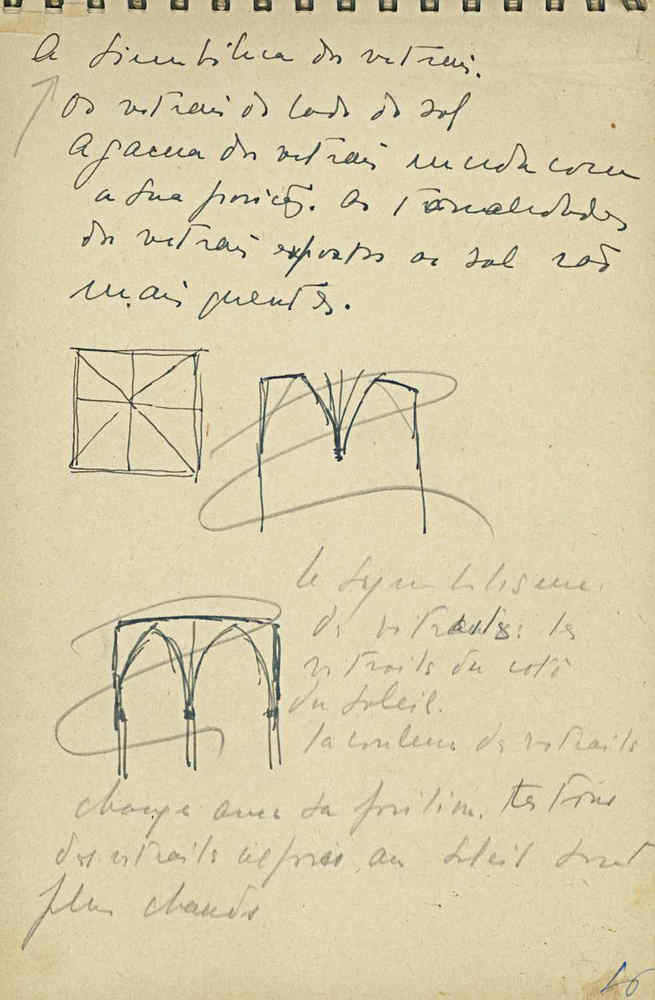 A Simbólica dos vitrais.
Os vitrais do lado do sol
A gama dos vitrais muda com
a sua posição. As tonalidades
dos vitrais expostos ao sol são
mais quentes.
le symbolisme
des vitrails: les
vitrails du coté
du soleil.
la couleur des vitrails
change avec sa position. les tons
des vitrails exposés au soleil sont
plus chauds